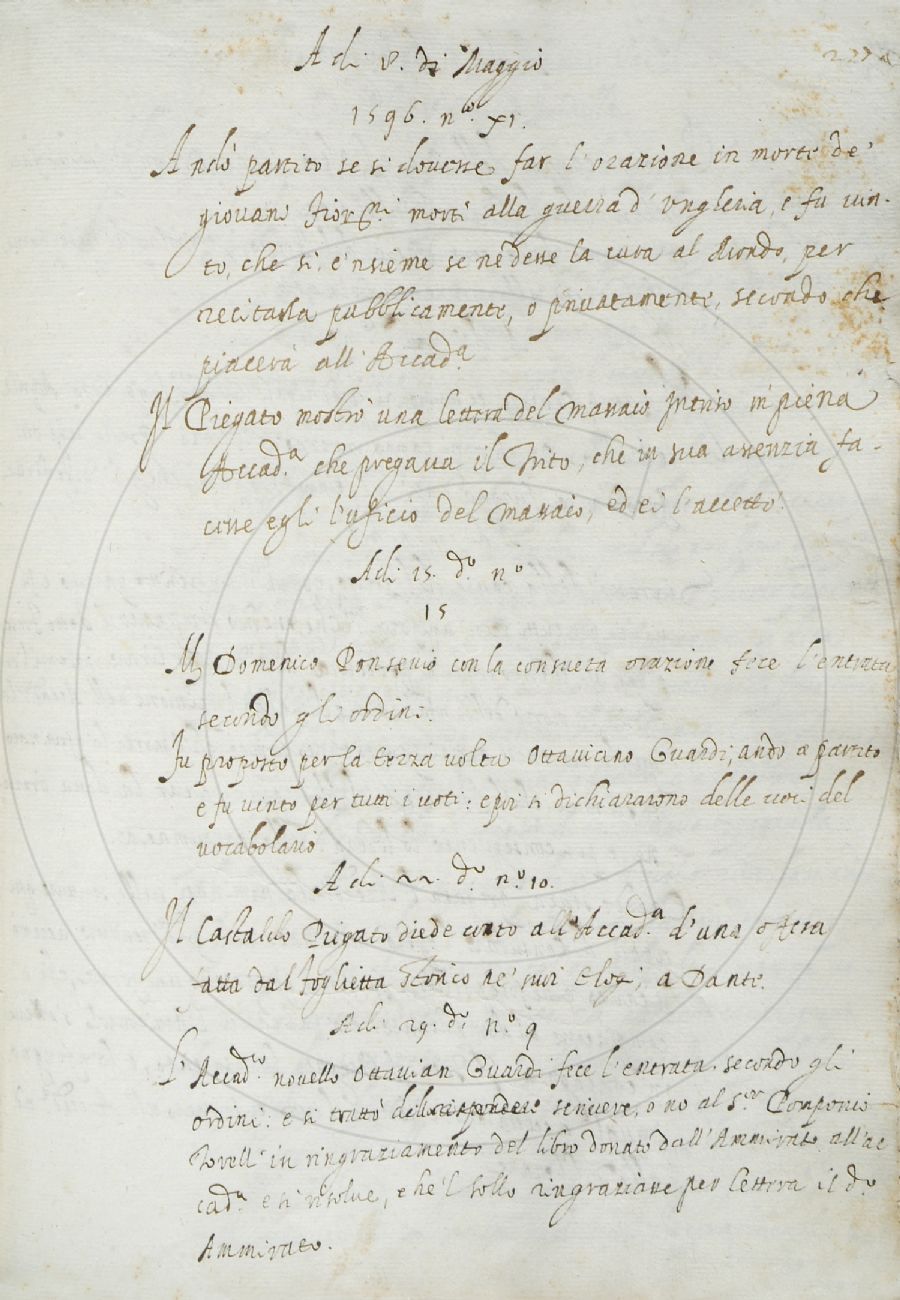 A di 8. di Maggio
227
1596. nº. XI.
Andò partito se si dovesse far l'orazione in morte de'
giovani Fior.ni morti alla guerra d'Ungheria, e fu vin-
to, che si, e 'nsieme se ne desse la cura al per
recitarla pubblicamente, o privatamente, secondo che
piacerà all'Accad.a
Il Riegato mostrò una lettera del massaio Intriso in piena
Accad.a che pregava il Trito, che in sua assenzia fa-
cesse egli l'uficio del massaio, ed ei l'accettò.
Adi 15. do. no
15
M. Domenico con la consueta orazione fece l'entrata
secondo gli ordini.
Fu proposto per la terza volta Ottaviano Guardi, andò a partito
e fu vinto per tutti i voti: e poi si dichiararono delle voci del
vocabolario.
A di 22. do. no. 10.
Il Castaldo Riegato diede conto all'Accad.a d'una offesa
fatta dal Foglietta Storico ne' suoi Elogi, a Dante.
A di 29. do. no. 9
L'Accad.co novello Ottavian Guardi fece l'entrata secondo gli
ordini: e si trattò del scrivere, o no al S.or Pomponio
Torelli in ringraziamento del libro donato dall'Ammirato all'ac
cad.a e si risolve, che 'l Sollo ringraziasse per lettera il do.
Ammirato.